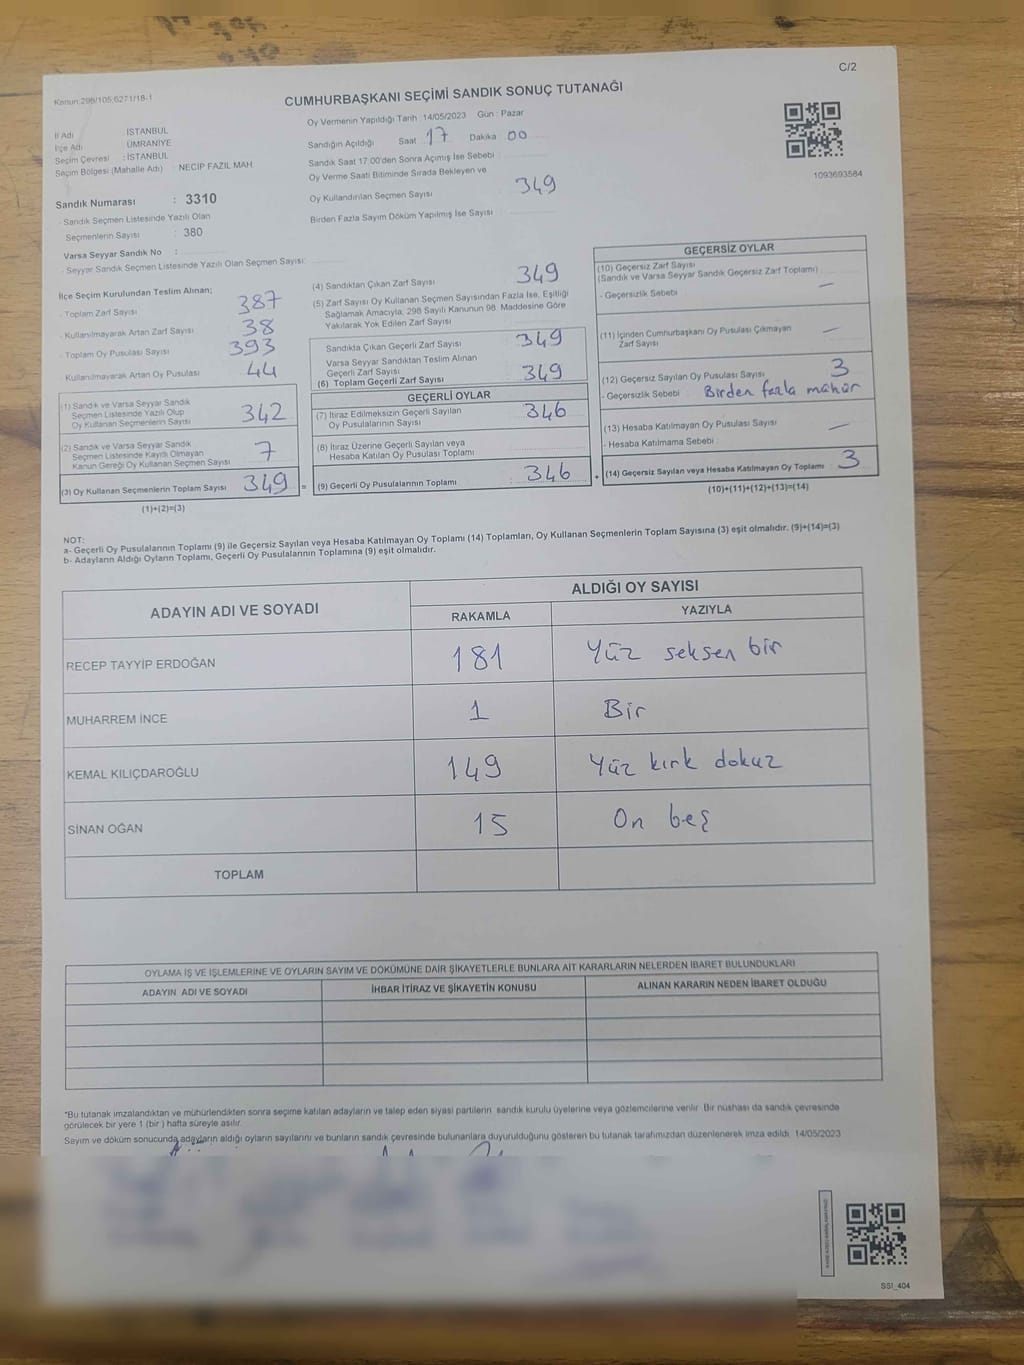 C/2
Kanun:298/105;6271/18-1
CUMHURBAŞKANI SEÇİMİ SANDIK SONUÇ TUTANAĞI
İl Adı : İSTANBUL
İlçe Adı : ÜMRANİYE
Seçim Çevresi : İSTANBUL
Seçim Bölgesi (Mahalle Adı) : NECİP FAZIL MAH.
Sandık Numarası : 3310
- Sandık Seçmen Listesinde Yazılı Olan
Seçmenlerin Sayısı : 380
Varsa Seyyar Sandık No :
- Seyyar Sandık Seçmen Listesinde Yazılı Olan Seçmen Sayısı:
Oy Vermenin Yapıldığı Tarih :14/05/2023 Gün : Pazar
Sandığın Açıldığı Saat 17 Dakika 00
Sandık Saat 17:00'den Sonra Açımış İse Sebebi :
Oy Verme Saati Bitiminde Sırada Bekleyen ve
Oy Kullandırılan Seçmen Sayısı 349
Birden Fazla Sayım Döküm Yapılmış İse Sayısı :
1093693584
İlçe Seçim Kurulundan Teslim Alınan;
- Toplam Zarf Sayısı 387
- Kullanılmayarak Artan Zarf Sayısı 38
- Toplam Oy Pusulası Sayısı 393
- Kullanılmayarak Artan Oy Pusulası 44
(1) Sandık ve Varsa Seyyar Sandık
Seçmen Listesinde Yazılı Olup
Oy Kullanan Seçmenlerin Sayısı 342
(2) Sandık ve Varsa Seyyar Sandık
Seçmen Listesinde Kayıtlı Olmayan
Kanun Gereği Oy Kullanan Seçmen Sayısı 7
(3) Oy Kullanan Seçmenlerin Toplam Sayısı 349 =
(1)+(2)=(3)
(4) Sandıktan Çıkan Zarf Sayısı 349
(5) Zarf Sayısı Oy Kullanan Seçmen Sayısından Fazla İse, Eşitliği
Sağlamak Amacıyla, 298 Sayılı Kanunun 98. Maddesine Göre
Yakılarak Yok Edilen Zarf Sayısı
Sandıkta Çıkan Geçerli Zarf Sayısı 349
Varsa Seyyar Sandıktan Teslim Alınan
Geçerli Zarf Sayısı
(6) Toplam Geçerli Zarf Sayısı 349
GEÇERLİ OYLAR
(7) İtiraz Edilmeksizin Geçerli Sayılan
Oy Pusulalarının Sayısı 346
(8) İtiraz Üzerine Geçerli Sayılan veya
Hesaba Katılan Oy Pusulası Toplamı
(9) Geçerli Oy Pusulalarının Toplamı : 346 +
GEÇERSİZ OYLAR
(10) Geçersiz Zarf Sayısı
(Sandık ve Varsa Seyyar Sandık Geçersiz Zarf Toplamı)
- Geçersizlik Sebebi —
(11) İçinden Cumhurbaşkanı Oy Pusulası Çıkmayan
Zarf Sayısı —
(12) Geçersiz Sayılan Oy Pusulası Sayısı 3
- Geçersizlik Sebebi Birden fazla mühür
(13) Hesaba Katılmayan Oy Pusulası Sayısı —
- Hesaba Katılmama Sebebi :
(14) Geçersiz Sayılan veya Hesaba Katılmayan Oy Toplamı 3
(10)+(11)+(12)+(13)=(14)
NOT:
a- Geçerli Oy Pusulalarının Toplamı (9) ile Geçersiz Sayılan veya Hesaba Katılmayan Oy Toplamı (14) Toplamları, Oy Kullanan Seçmenlerin Toplam Sayısına (3) eşit olmalıdır. (9)+(14)=(3)
b- Adayların Aldığı Oyların Toplamı, Geçerli Oy Pusulalarının Toplamına (9) eşit olmalıdır.
ADAYIN ADI VE SOYADI
ALDIĞI OY SAYISI
RAKAMLA YAZIYLA
RECEP TAYYİP ERDOĞAN 181 Yüz seksen bir
MUHARREM İNCE 1 Bir
KEMAL KILIÇDAROĞLU 149 Yüz kırk dokuz
SİNAN OĞAN 15 On beş
TOPLAM
OYLAMA İŞ VE İŞLEMLERİNE VE OYLARIN SAYIM VE DÖKÜMÜNE DAİR ŞİKAYETLERLE BUNLARA AİT KARARLARIN NELERDEN İBARET BULUNDUKLARI
ADAYIN ADI VE SOYADI İHBAR İTİRAZ VE ŞİKAYETİN KONUSU ALINAN KARARIN NEDEN İBARET OLDUĞU
*Bu tutanak imzalandıktan ve mühürlendikten sonra seçime katılan adayların ve talep eden siyasi partilerin sandık kurulu üyelerine veya gözlemcilerine verilir. Bir nüshası da sandık çevresinde
görülecek bir yere 1 (bir ) hafta süreyle asılır.
Sayım ve döküm sonucunda adayların aldığı oyların sayılarını ve bunların sandık çevresinde bulunanlara duyurulduğunu gösteren bu tutanak tarafımızdan düzenlenerek imza edildi. 14/05/2023
SSI_404